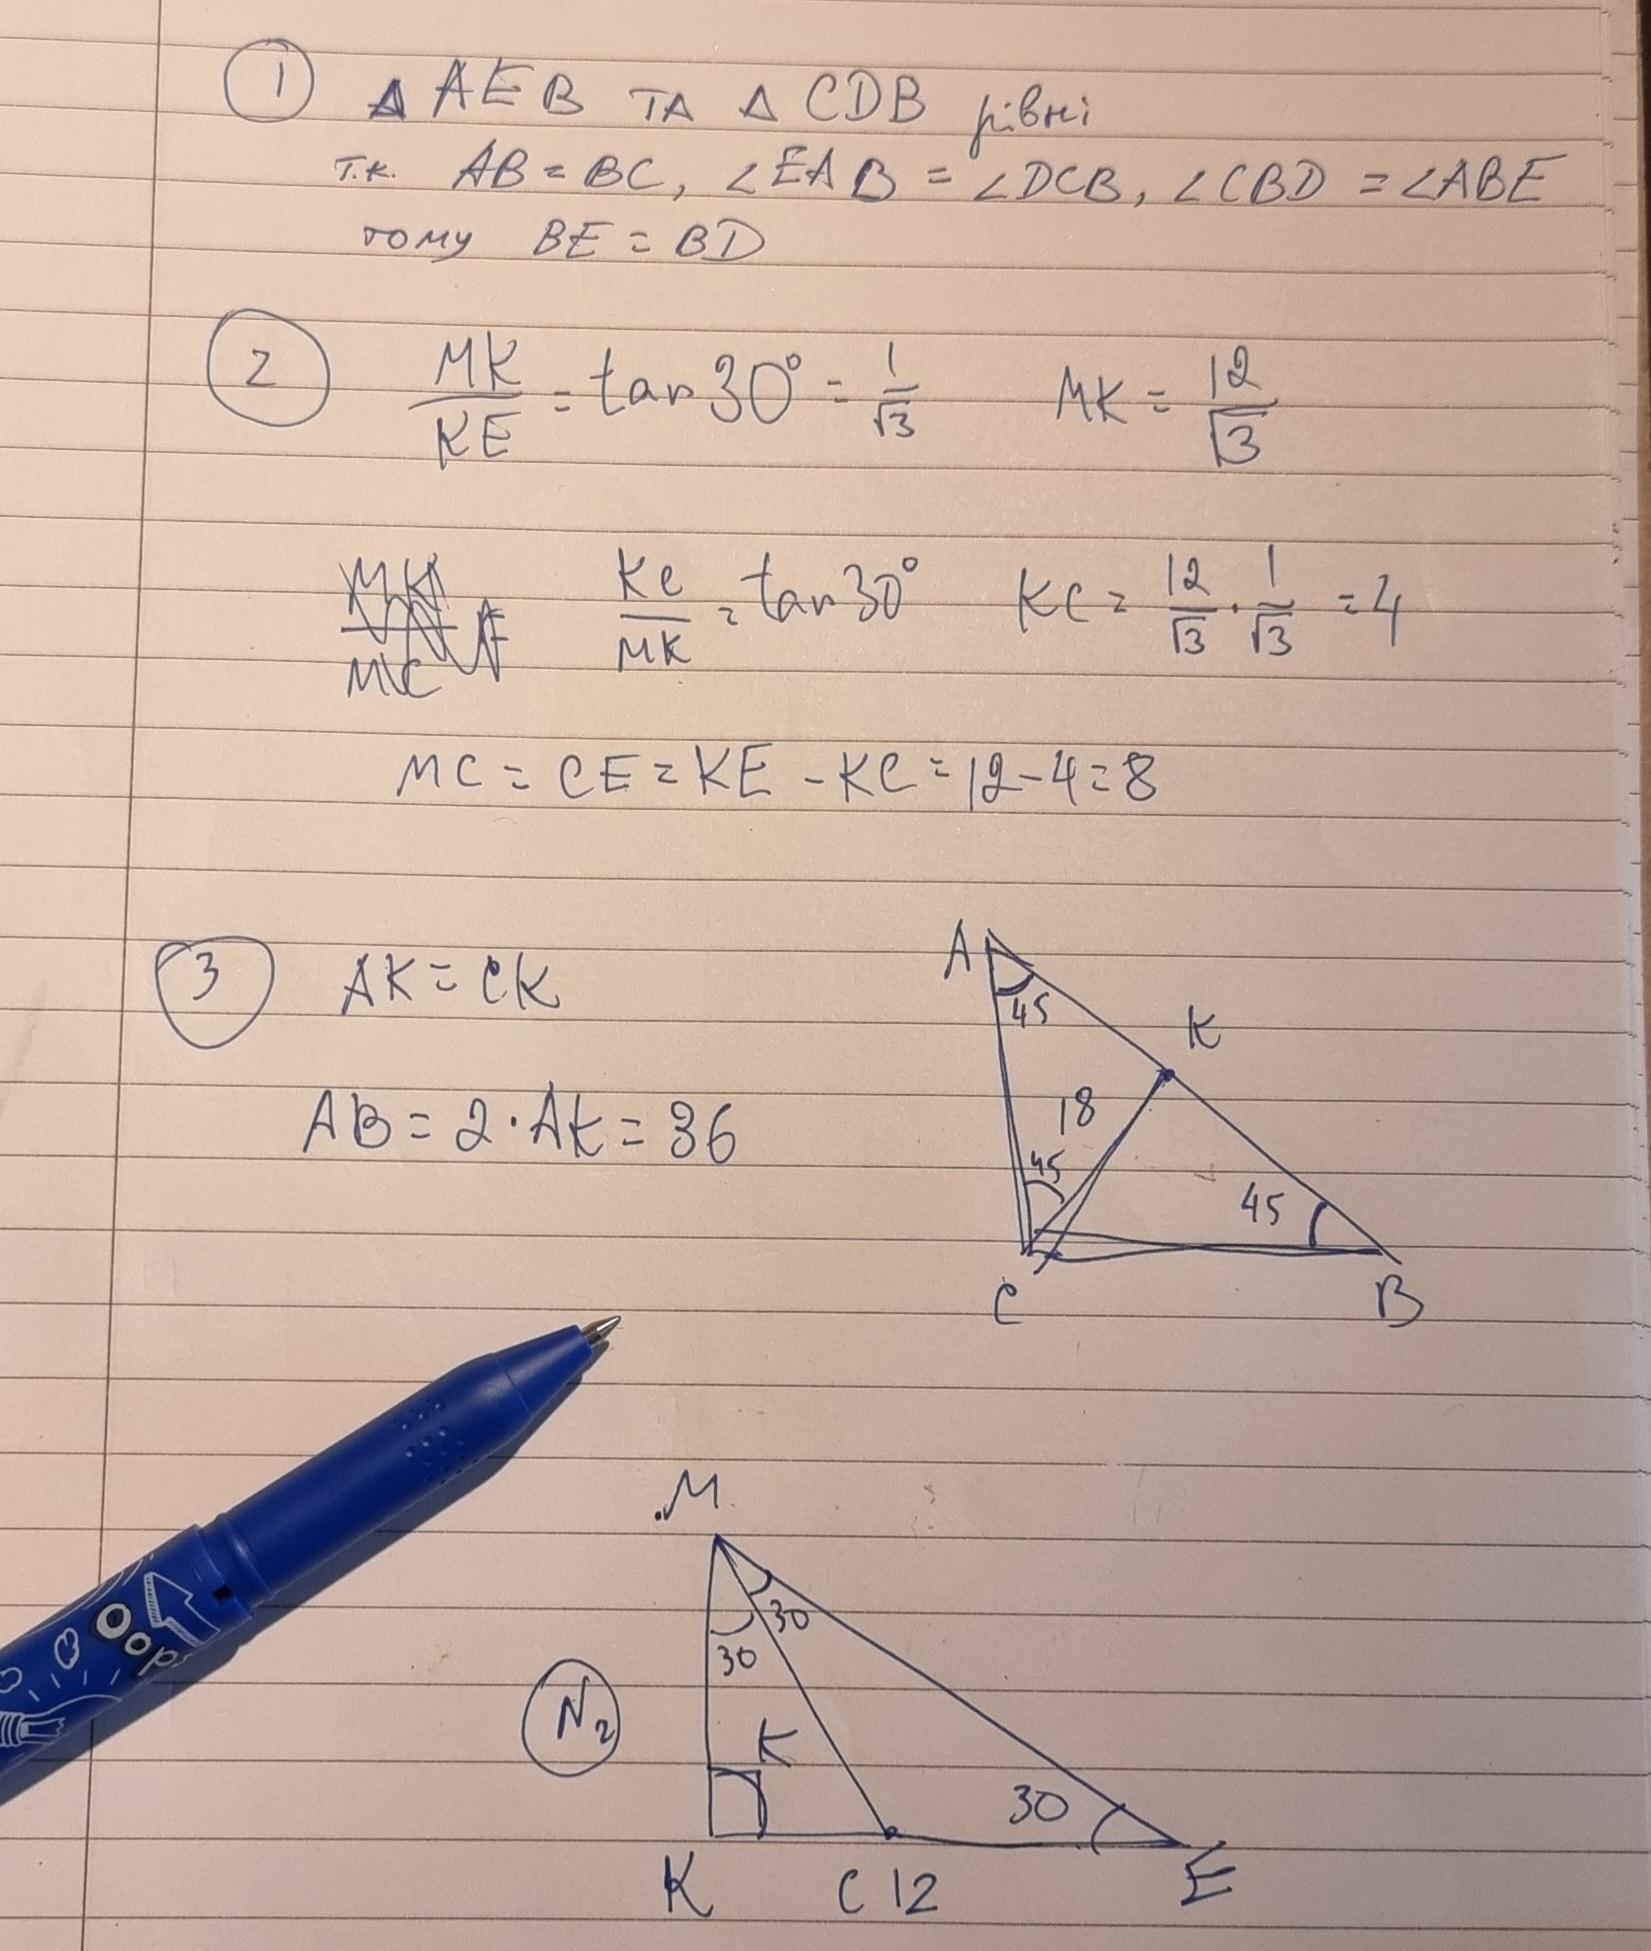 1 △ AEB ТА △ CDB рівні
т.к. AB = BC, ∠EAB = ∠DCB, ∠CBD = ∠ABE
тому BE = BD
2 MK/KE = tan 30° = 1/√3 MK = 12/√3
KC/MK = tan 30° KC = 12/√3 · 1/√3 = 4
MC = CE = KE - KC = 12 - 4 = 8
3 AK = CK
AB = 2 · AK = 36
A
45
K
18
45
45
C
B
Oops
M
30
30
N2
K
30
K C 12 E